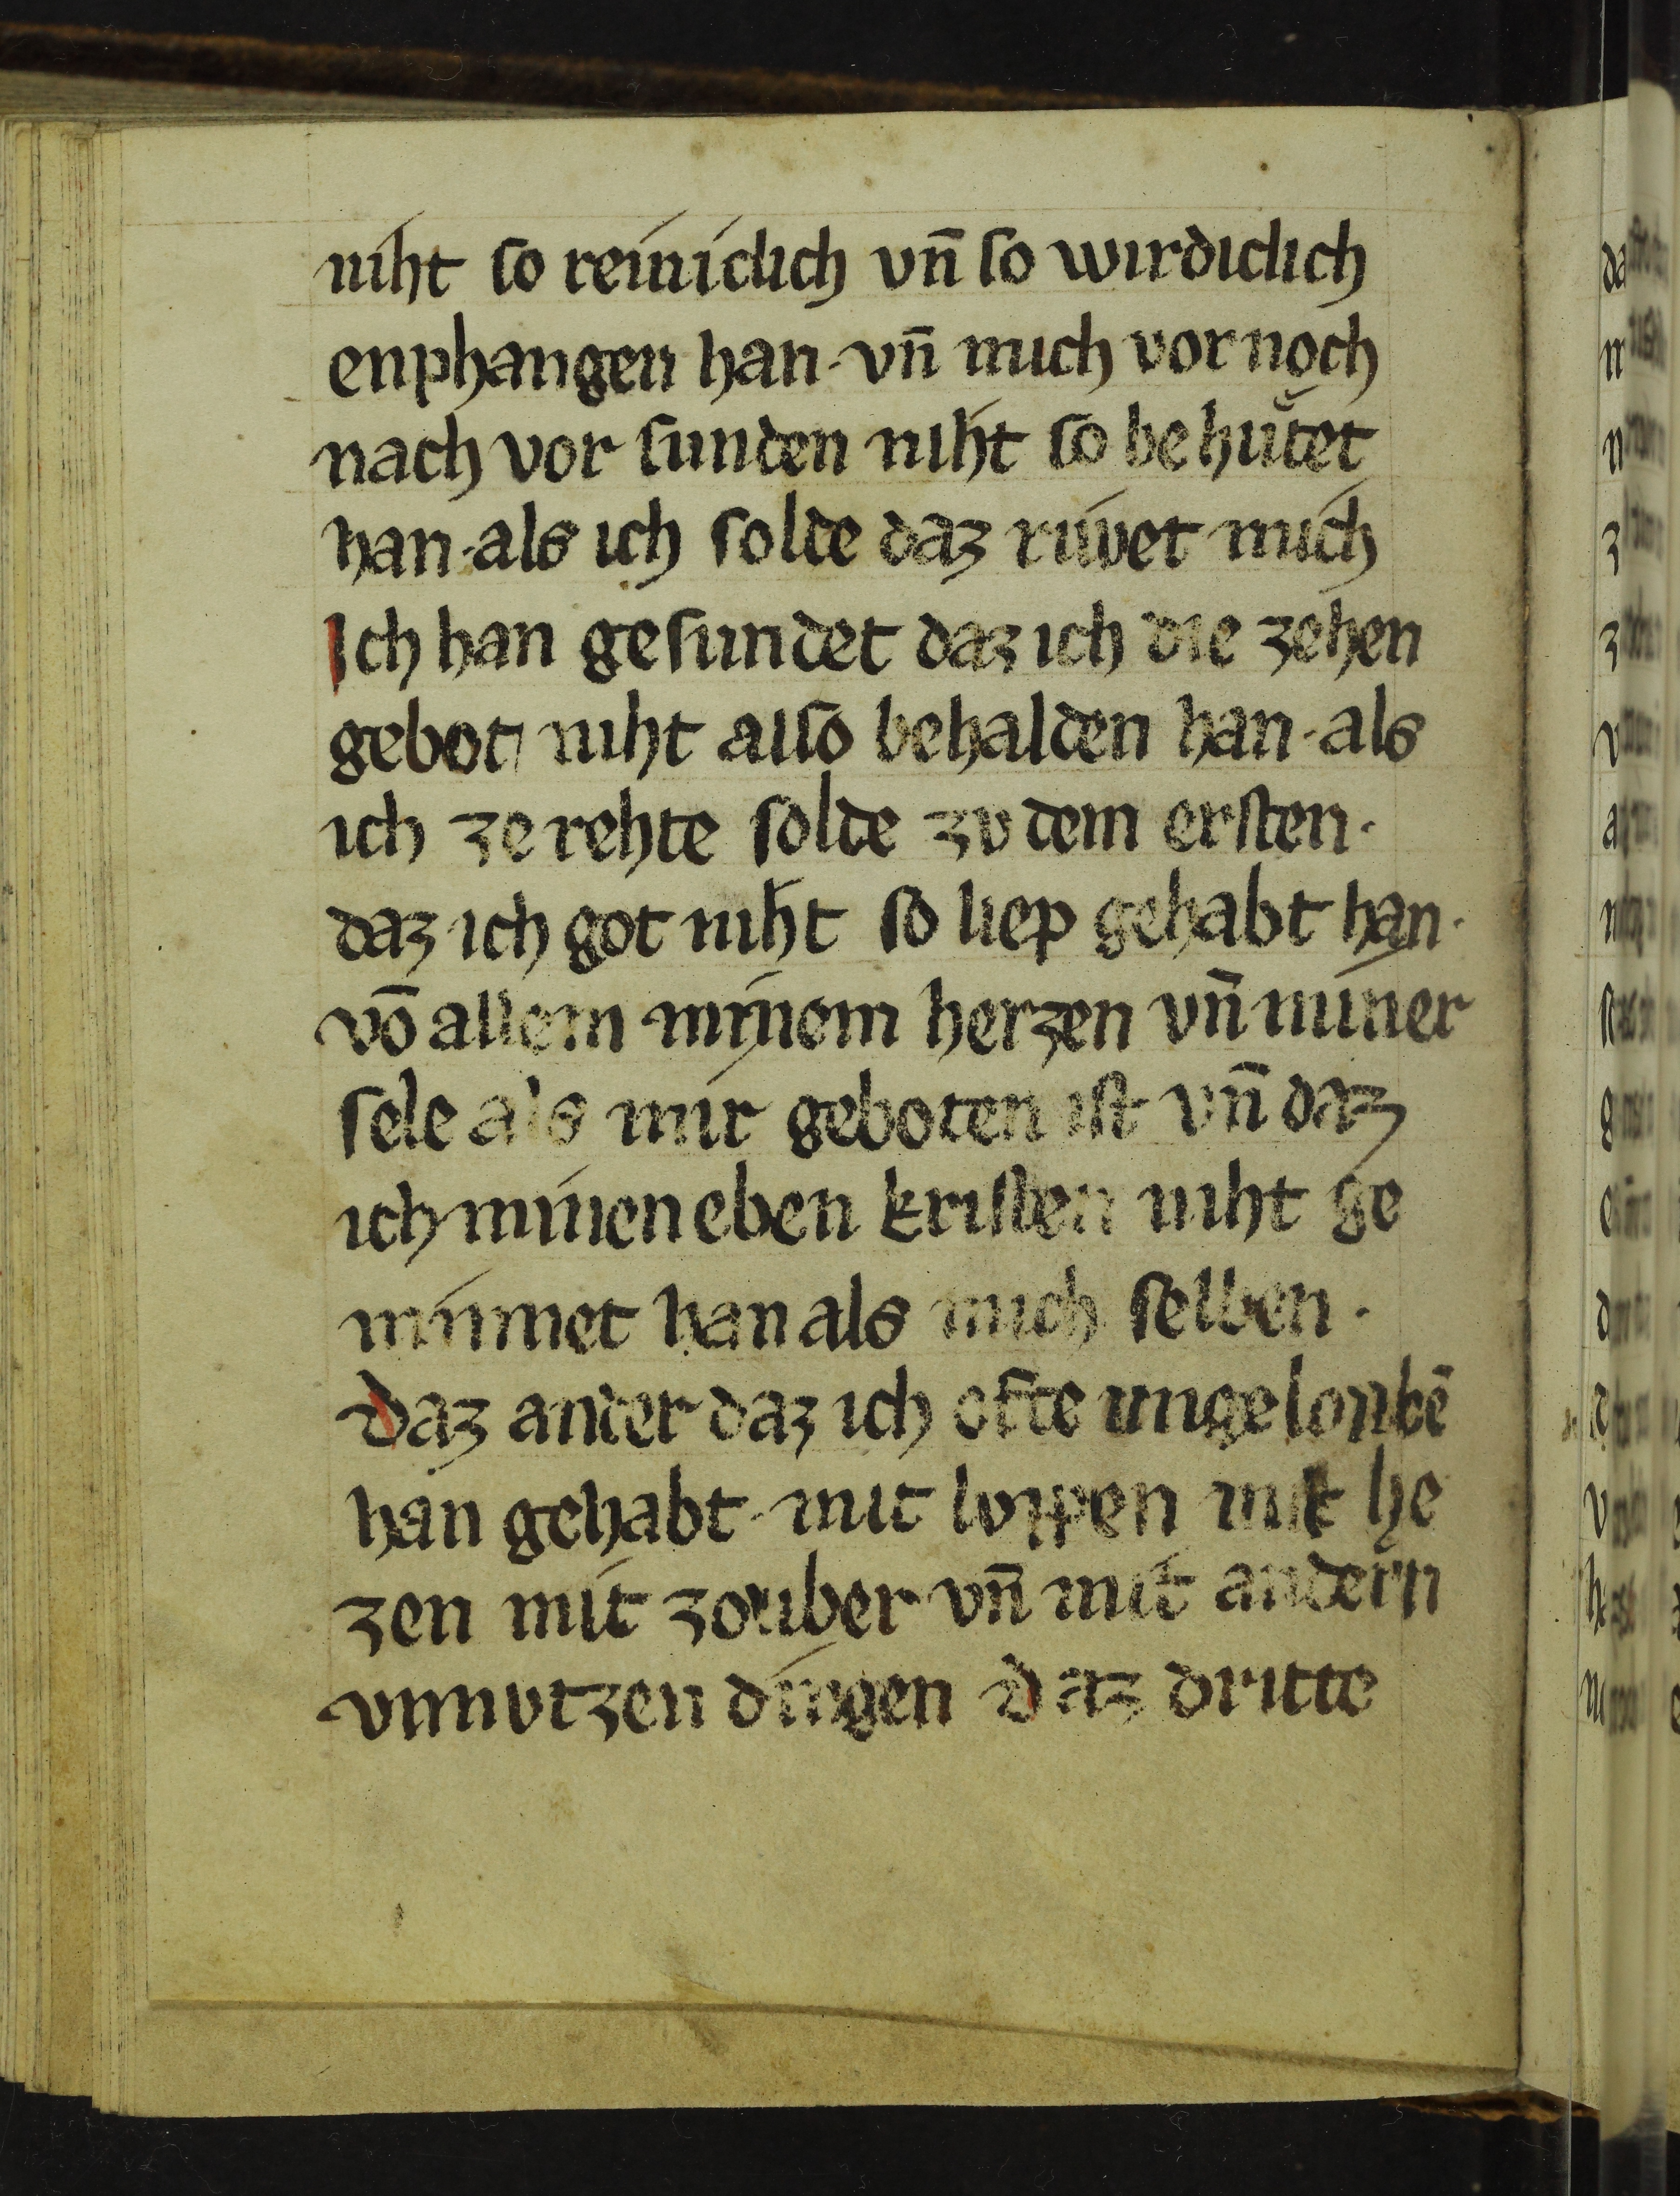 niht so reiniclich vn̄ so wirdiclich
enphangen han · vn̄ mich vor noch
nach vor sunden niht so behuͤtet
han · als ich solde daz riwet mich
Ich han gesundet daz ich die zehen
gebot niht also behalden han · als
ich ze rehte solde zv dem ersten ·
daz ich got niht so liep gehabt han ·
vō allem minem herzen vn̄ miner
sele als mir geboten ist vn̄ daz
ich minen eben kristen niht ge
minnet han als mich selben ·
Daz ander daz ich ofte ungeloubē
han gehabt · mit loppen mit he
zen mit zouber vn̄ mit andern
vnnvtzen dingen Daz dritte